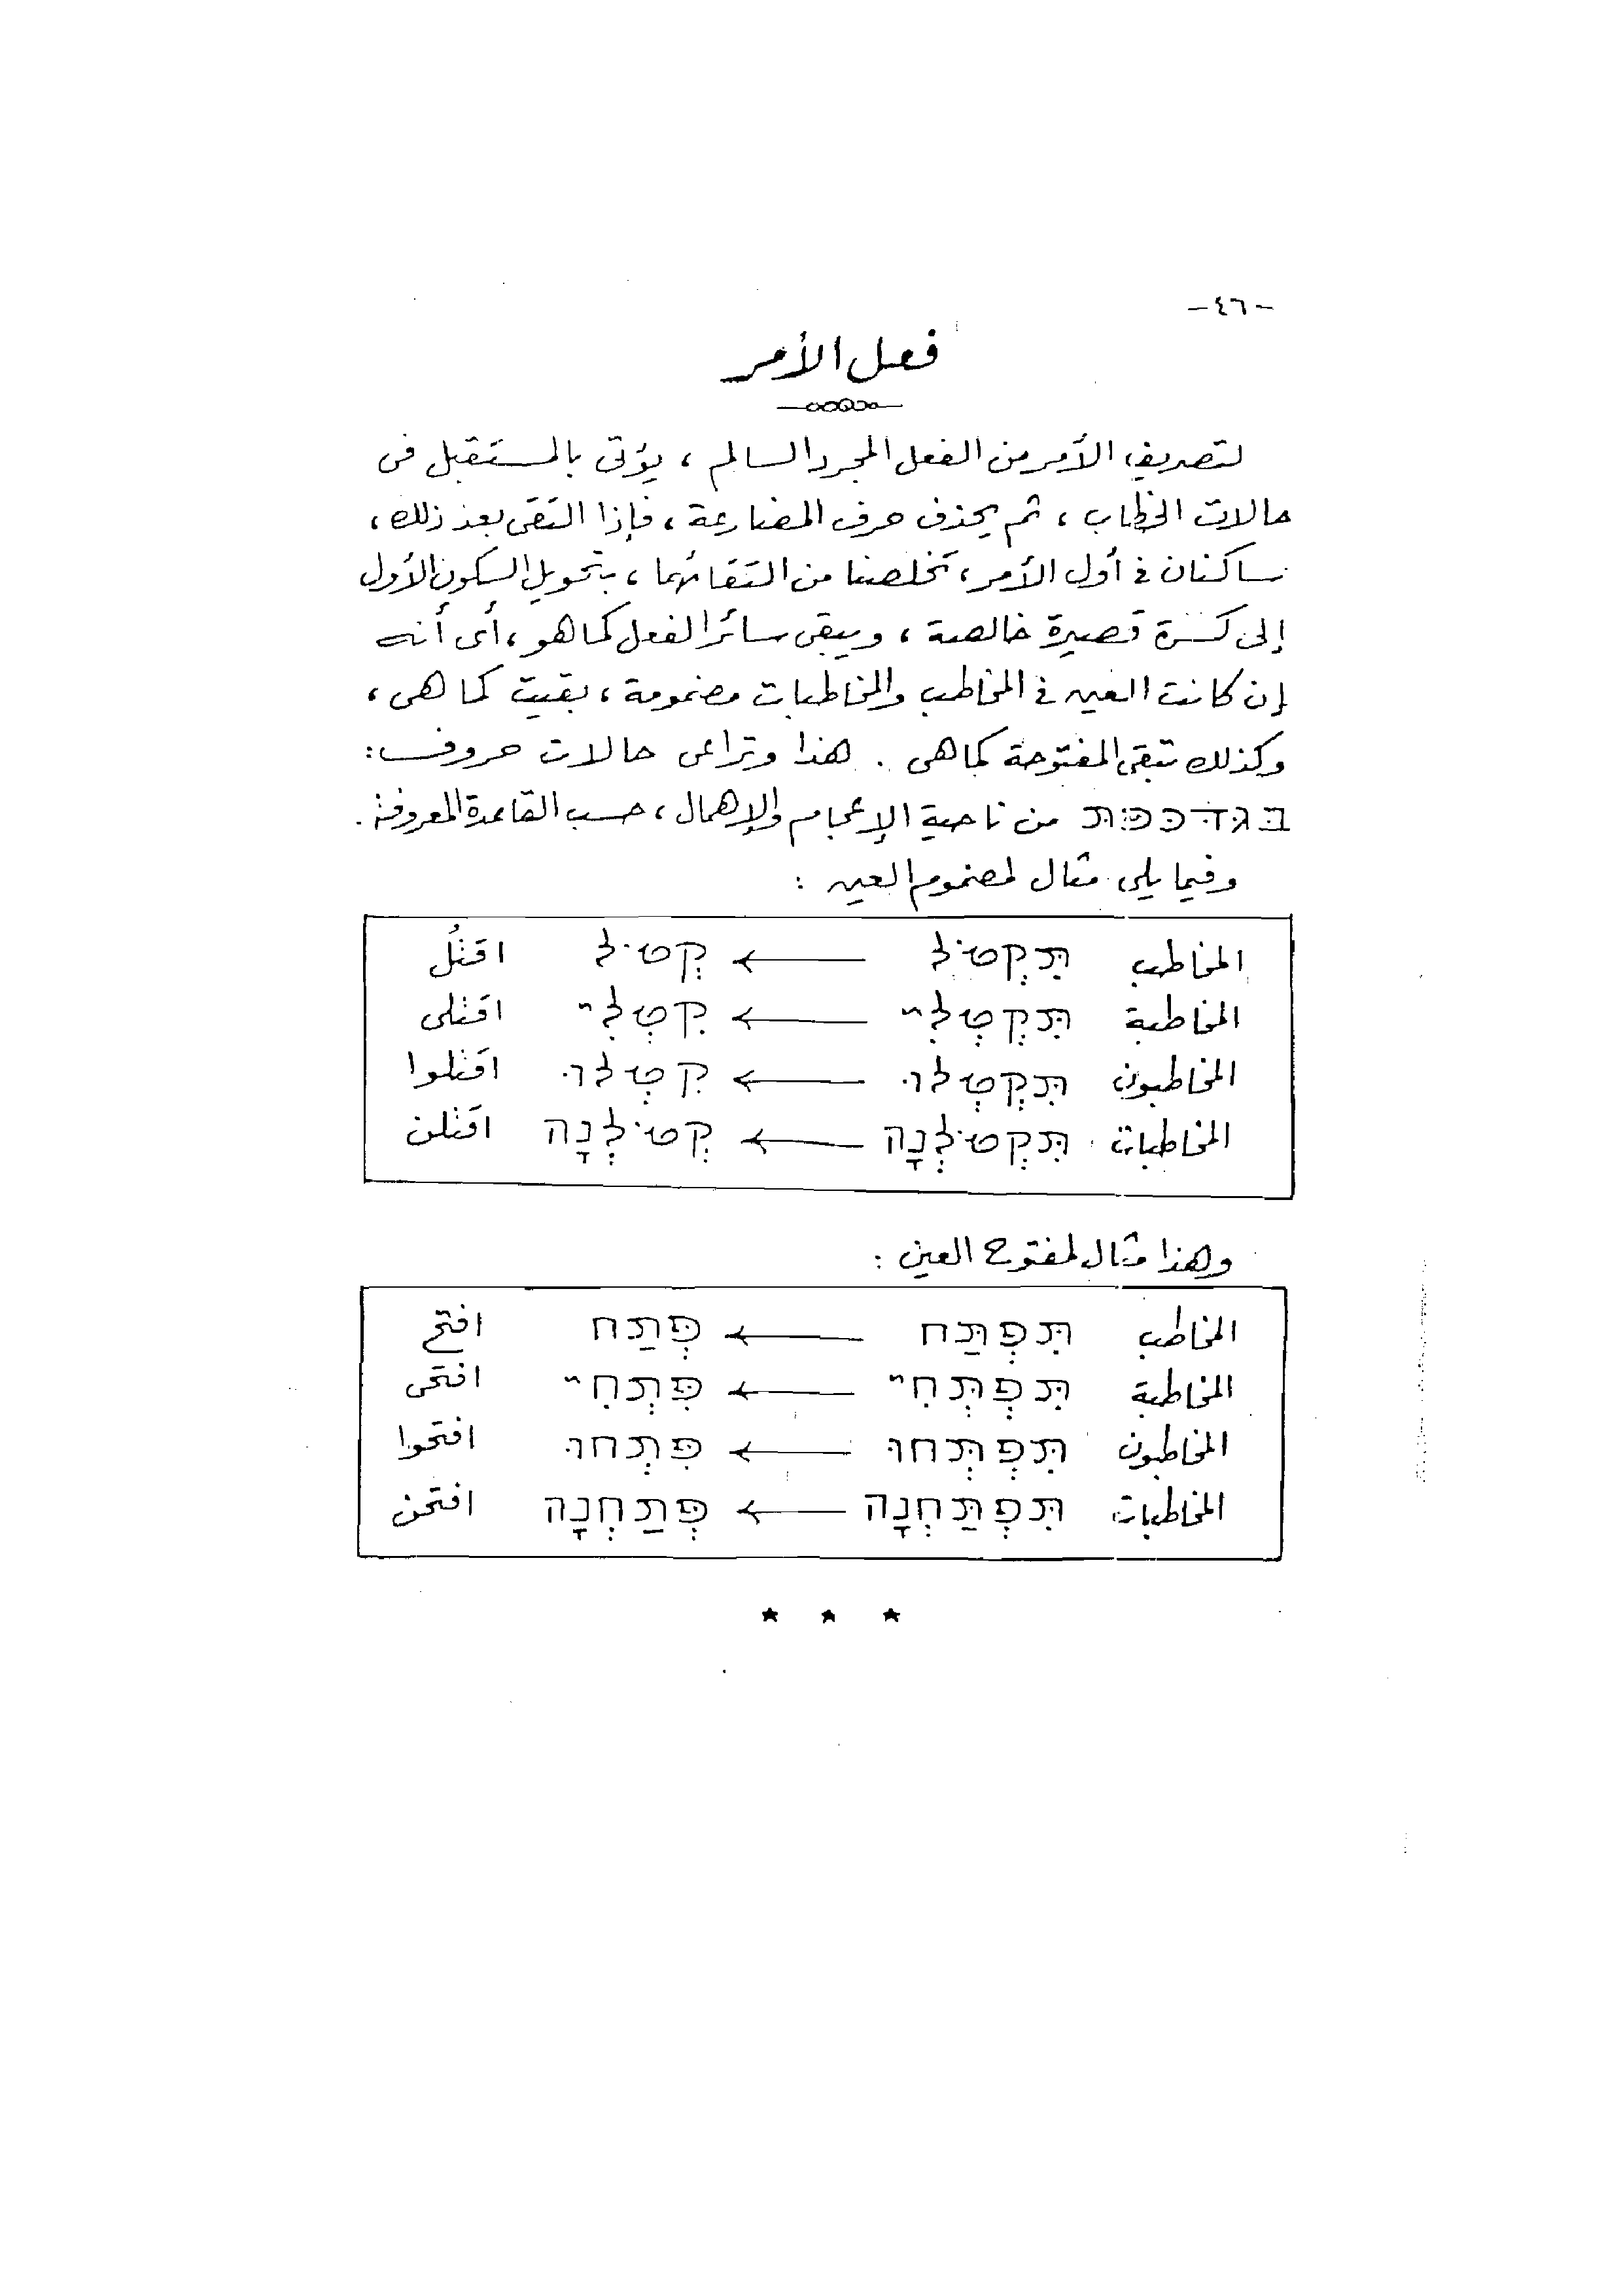 -٤٦-
فعل الأمر
لتصريف الأمر من الفعل المجرد السالم ، يؤتى بالمستقبل فى
حالات الخطاب ، ثم يحذف حرف المضارعة ، فإذا التقى بعد ذلك ،
ساكنان فى أول الأمر ، تخلصنا من التقائهما ، بتحويل السكون الأول
إلى كسرة قصيرة خالصة ، ويبقى سائر الفعل كما هو ، أى أنه
إن كانت العين فى المخاطب والمخاطبات مضمومة ، بقيت كما هى ،
وكذلك تبقى المفتوحة كما هى . هذا وتراعى حالات حروف :
בּגּדּכּפּתּ من ناحية الإعجام والإهمال ، حسب القاعدة المعروفة .
وفيما يلى مثال لمضموم العين :
المخاطب תִּקְטֹל ← קְטֹל اقتُل
المخاطبة תִּקְטְלִי ← קִטְלִי اقتلى
المخاطبون תִּקְטְלוּ ← קִטְלוּ اقتلوا
المخاطبات תִּקְטֹלְנָה ← קְטֹלְנָה اقتلن
وهذا مثال لمفتوح العين :
المخاطب תִּפְתַּח ← פְּתַח افتح
المخاطبة תִּפְתְּחִי ← פִּתְחִי افتحى
المخاطبون תִּפְתְּחוּ ← פִּתְחוּ افتحوا
المخاطبات תִּפְתַּחְנָה ← פְּתַחְנָה افتحن
* * *